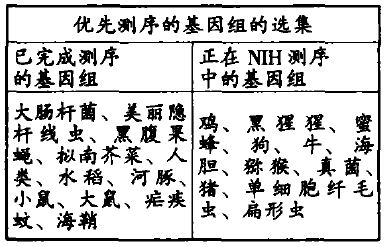 优先测序的基因组的选集
已完成测序
的基因组
正在 NIH 测序
中的基因组
大肠杆菌、美丽隐
杆线虫、黑腹果
蝇、拟南芥菜、人
类、水稻、河豚、
小鼠、大鼠、疟疾
蚊、海鞘
鸡、黑猩猩、蜜
蜂、狗、牛、海
胆、猕猴、真菌、
猪、单细胞纤毛
虫、扁形虫